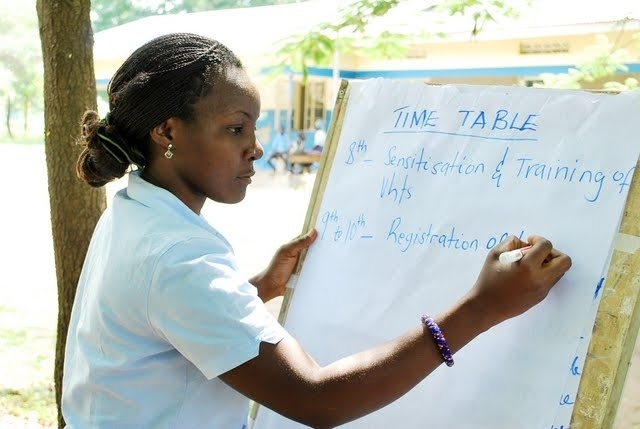 TIME TABLE
8th - Sensitisation & Training of
Vhts
9th & 10th - Registration of